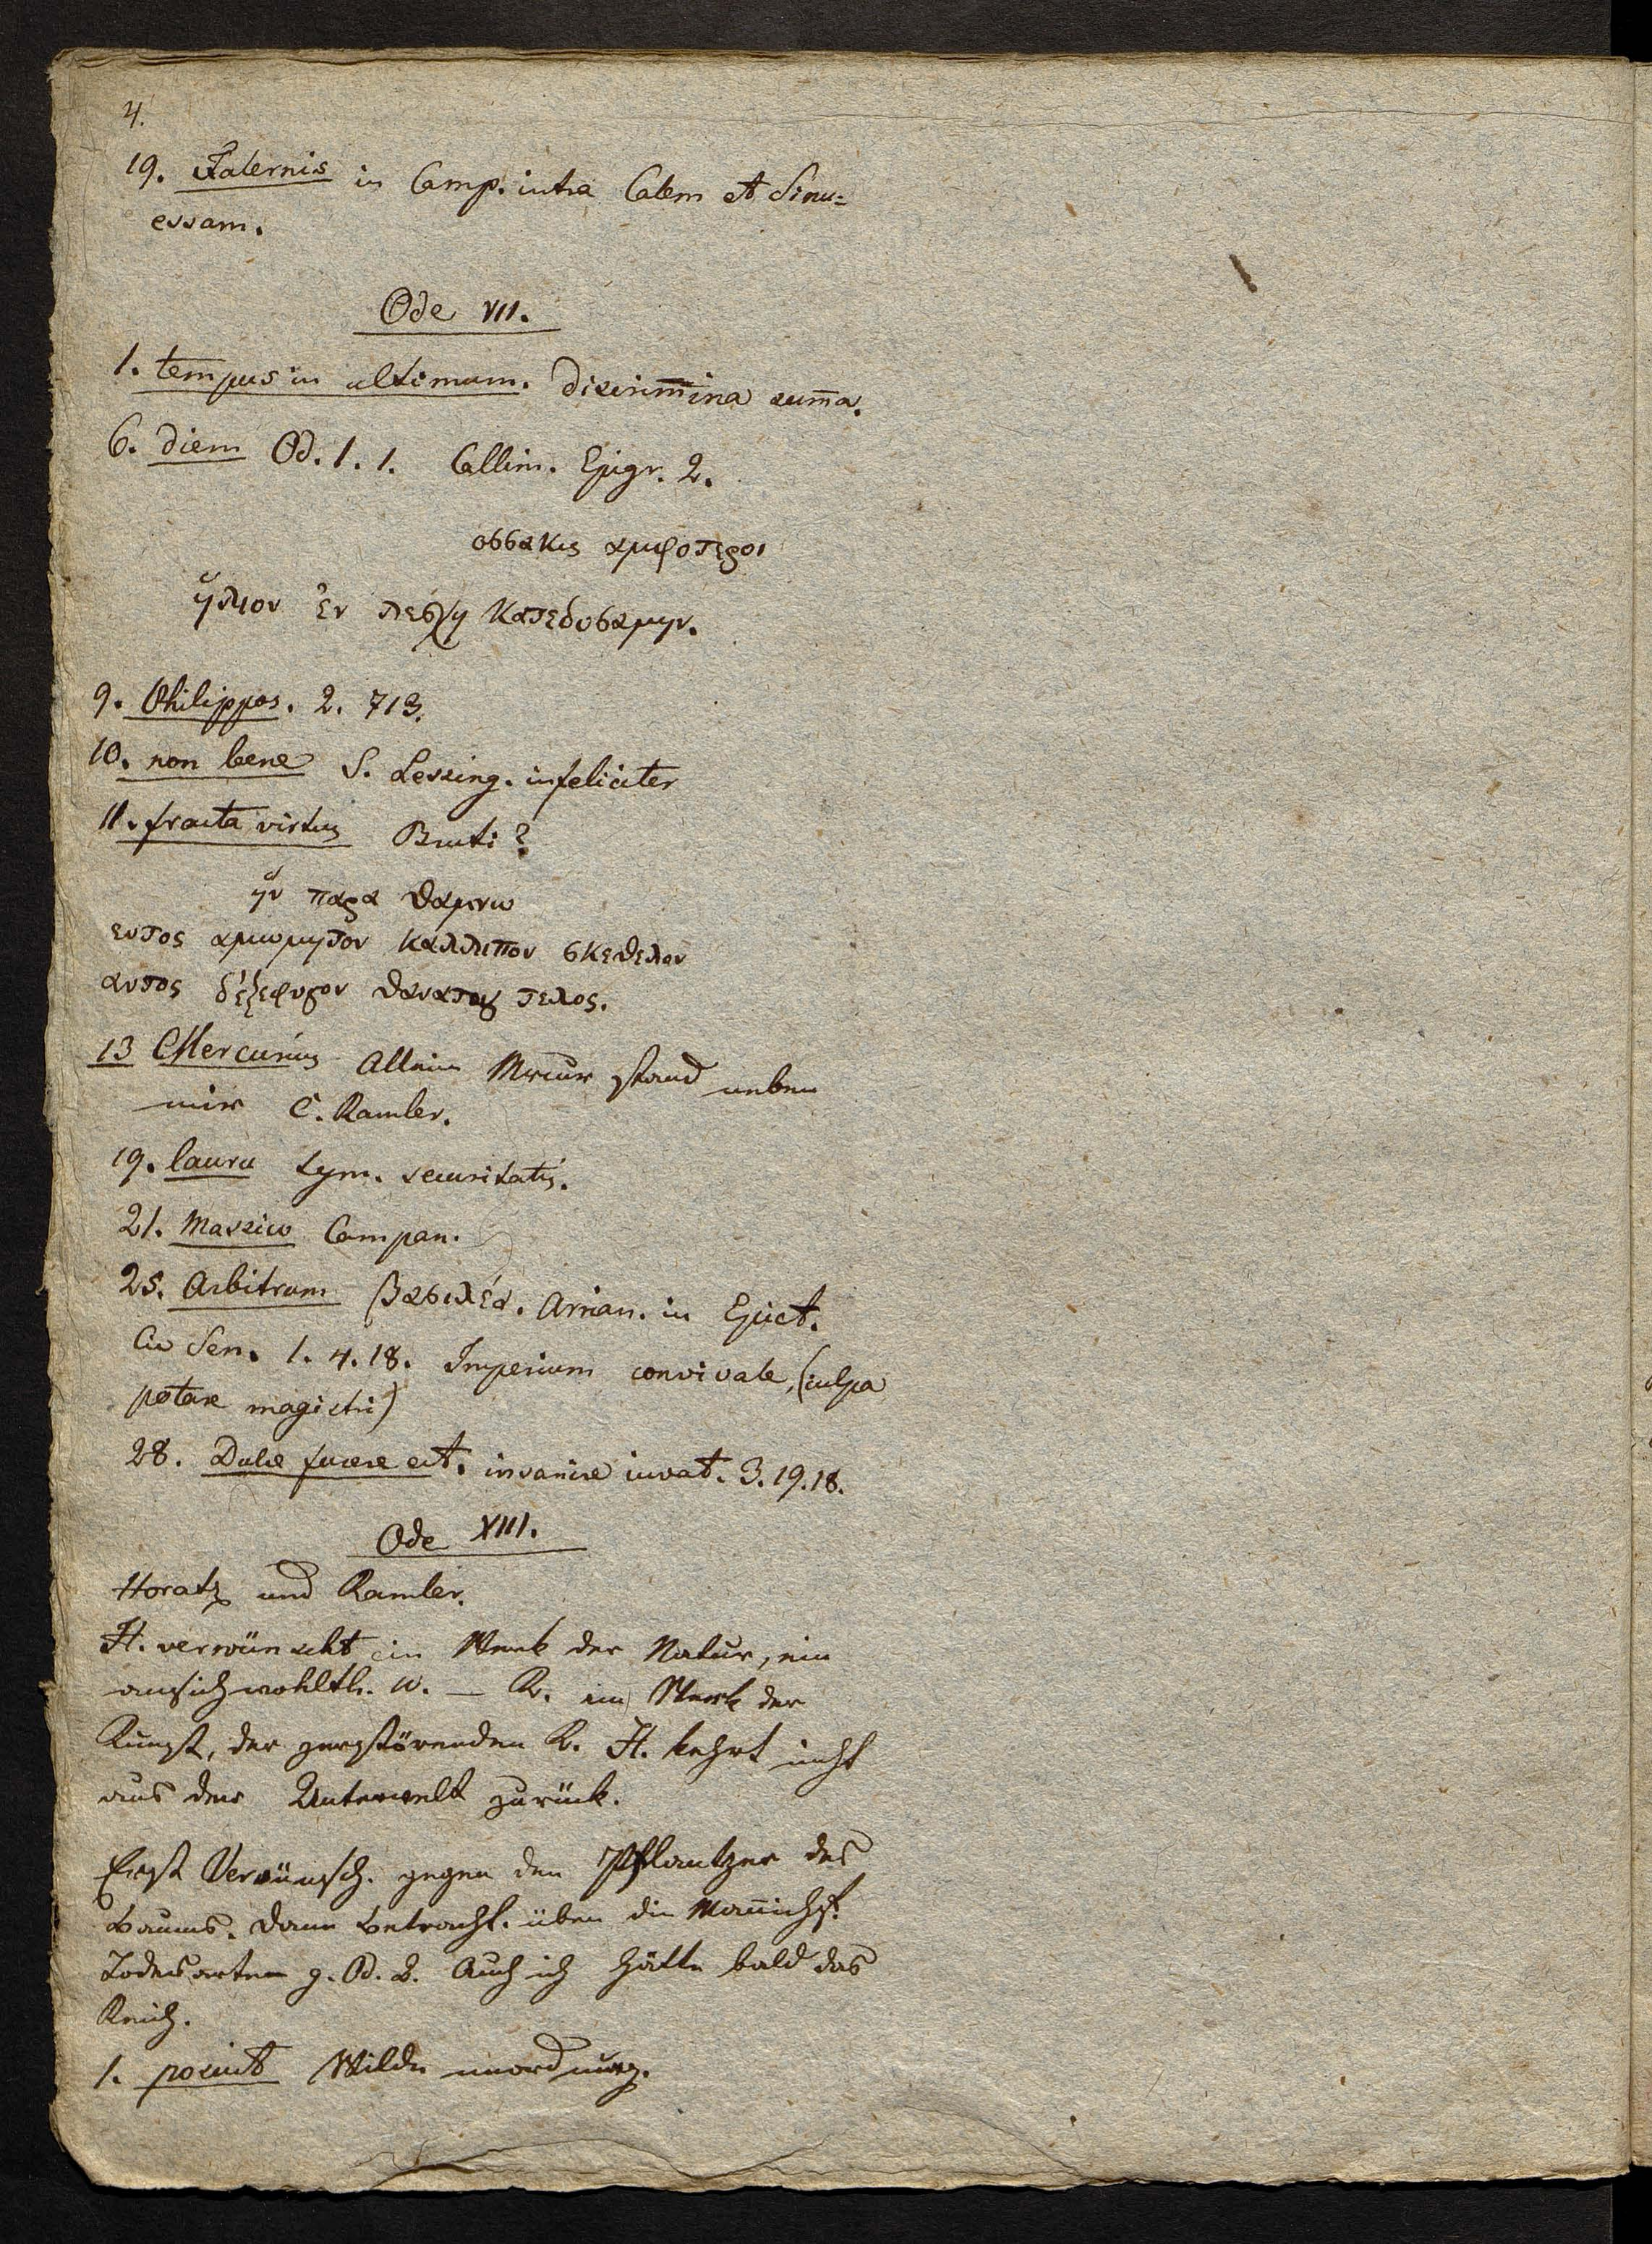 4.
19. Falernis in Camp. intra Calem et Sinu=
essam.
Ode VII.
1. tempus in ultimum. discrim̅ina sum̅a.
6. diem Od. 1. 1. Callim. Epigr. 2.
οσσακις αμφοτεροι
ἥλιον ἐν λεσχη κατεδυσαμην.
9. Philippos. 2. 713.
10. non bene S. Lessing. infeliciter
11. fracta virtus Bruti?
ἥν παρα θαμνω
εντος αμωμητον καλλιπον ουκ εθελων
αυτος δ'ἐξεφυγον θανατου τελος.
13 Mercurius Allein Mercur stand neben
mir C. Ramler.
19. lauru sym. securitatis.
21. Massico Campan.
25. Arbitrum βασιλέα. Arrian. in Epict.
Cic Sen. 1. 4. 18. Imperium convivale, (culpa
potare magistri)
28. Dulce furere est. insanire iuvat. 3. 19. 18.
Ode XIII.
Horatz und Ramler.
H. verwünscht ein Werk der Natur, ein
ansich wohlth. W. — R. ein Werk der
Kunst, der zerstörenden K. H. kehrt nicht
aus der Unterwelt zurück.
Erst Verwünsch. gegen den Pflantzer des
Baums. Dann Betracht. über die Man̅ichf.
Todesarten z. Od. 2. Auch ich hätte bald das
Reich.
1. posuit Wilde unordnung.